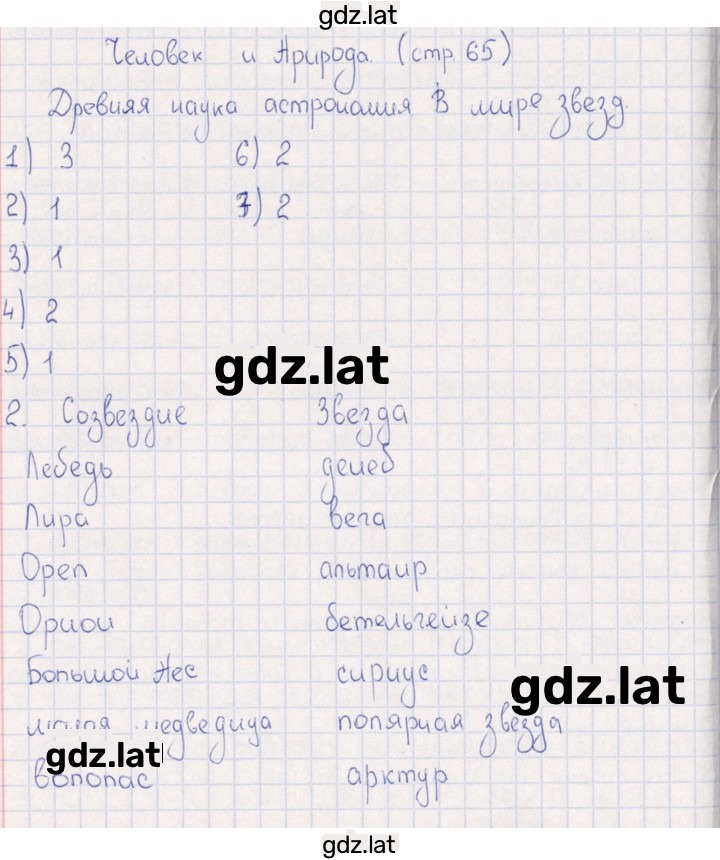 gdz.lat
Человек и Природа (стр. 65)
Древняя наука астрономия В мире звезд.
1) 3 6) 2
2) 1 7) 2
3) 1
4) 2
5) 1
gdz.lat
2. Созвездие Звезда
Лебедь денеб
Лира вега
Орел альтаир
Орион бетельгейзе
Большой Пес сириус
gdz.lat
медведица полярная звезда
gdz.lat
волопас арктур
gdz.lat